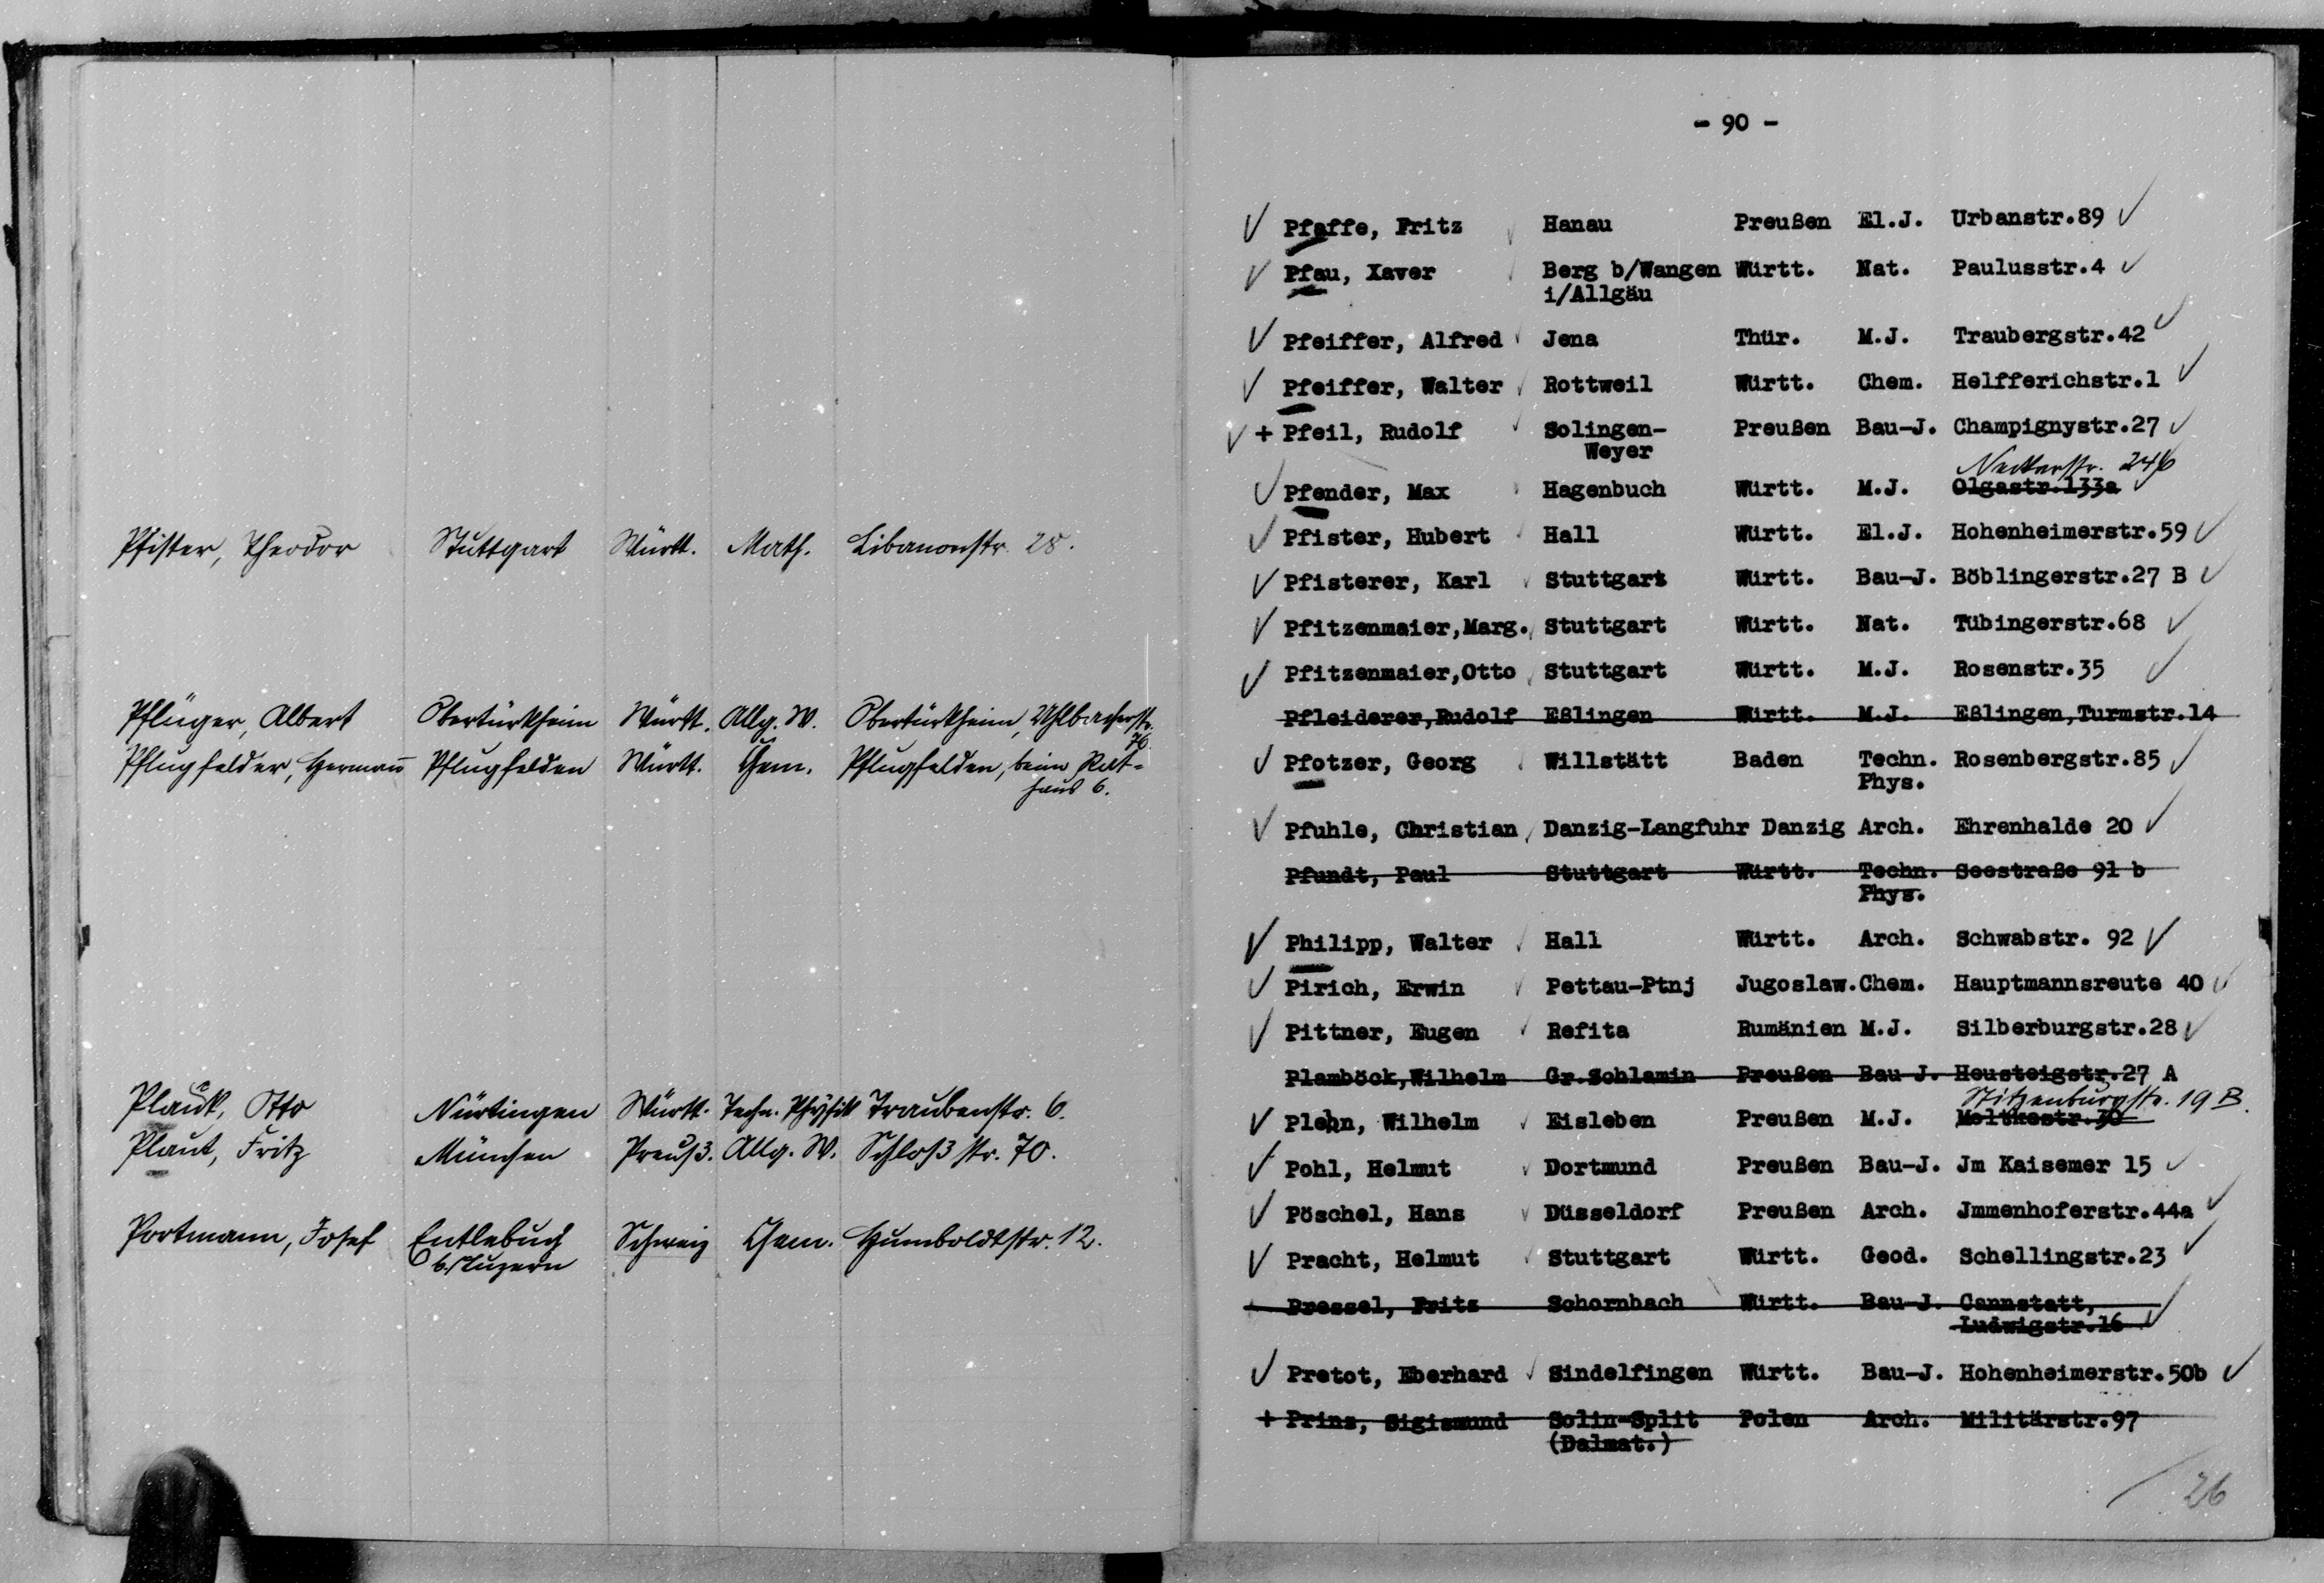 Pfister, Theodor Stuttgart Württ. Math. Libanonstr. 28.
Pflüger, Albert Obertürkheim Württ. Allg. W. Obertürkheim, Uhlbacherstr.
76.
Pflugfelder, Hermann Pflugfelden Württ. Chem. Pflugfelden, beim Rat-
haus 6.
Plauk, Otto Nürtingen Württ. Techn. Physik Traubenstr. 6.
Plaut, Fritz München Preuß. Allg. W. Schloßstr. 70.
Portmann, Josef Entlebuch Schweiz Chem. Humboldtstr. 12.
b/Luzern
- 90 -
✓ Pfaffe, Fritz ✓ Hanau Preußen El.J. Urbanstr.89 ✓
✓ Pfau, Xaver ✓ Berg b/Wangen Württ. Nat. Paulusstr.4 ✓
i/Allgäu
✓ Pfeiffer, Alfred ✓ Jena Thür. M.J. Traubergstr.42 ✓
✓ Pfeiffer, Walter ✓ Rottweil Württ. Chem. Helfferichstr.1 ✓
✓ + Pfeil, Rudolf ✓ Solingen- Preußen Bau-J. Champignystr.27 ✓
Weyer
Neckarstr. 246
✓ Pfender, Max ✓ Hagenbuch Württ. M.J. Olgastr.133a ✓
✓ Pfister, Hubert ✓ Hall Württ. El.J. Hohenheimerstr.59 ✓
✓ Pfisterer, Karl ✓ Stuttgart Württ. Bau-J. Böblingerstr.27 B ✓
✓ Pfitzenmaier,Marg. ✓ Stuttgart Württ. Nat. Tübingerstr.68 ✓
✓ Pfitzenmaier,Otto ✓ Stuttgart Württ. M.J. Rosenstr.35 ✓
Pfleiderer,Rudolf Eßlingen Württ. M.J. Eßlingen,Turmstr.14
✓ Pfotzer, Georg ✓ Willstätt Baden Techn. Rosenbergstr.85 ✓
Phys.
✓ Pfuhle, Christian ✓ Danzig-Langfuhr Danzig Arch. Ehrenhalde 20 ✓
Pfundt, Paul Stuttgart Württ. Techn. Seestraße 91 b
Phys.
✓ Philipp, Walter ✓ Hall Württ. Arch. Schwabstr. 92 ✓
✓ Pirich, Erwin ✓ Pettau-Ptnj Jugoslaw.Chem. Hauptmannsreute 40 ✓
✓ Pittner, Eugen ✓ Refita Rumänien M.J. Silberburgstr.28 ✓
Plamböck,Wilhelm Gr.Schlamin Preußen Bau J. Heusteigstr.27 A
Stitzenburgstr. 19 B.
✓ Plehn, Wilhelm ✓ Eisleben Preußen M.J. Moltkestr.30
✓ Pohl, Helmut ✓ Dortmund Preußen Bau-J. Jm Kaisemer 15 ✓
✓ Pöschel, Hans ✓ Düsseldorf Preußen Arch. Jmmenhoferstr.44a ✓
✓ Pracht, Helmut ✓ Stuttgart Württ. Geod. Schellingstr.23 ✓
Pressel, Fritz Schornbach Württ. Bau-J. Cannstatt, ✓
Ludwigstr.16 ✓
✓ Pretot, Eberhard ✓ Sindelfingen Württ. Bau-J. Hohenheimerstr.50b ✓
+ Prinz, Sigismund Solin-Split Polen Arch. Militärstr.97
(Dalmat.)
26